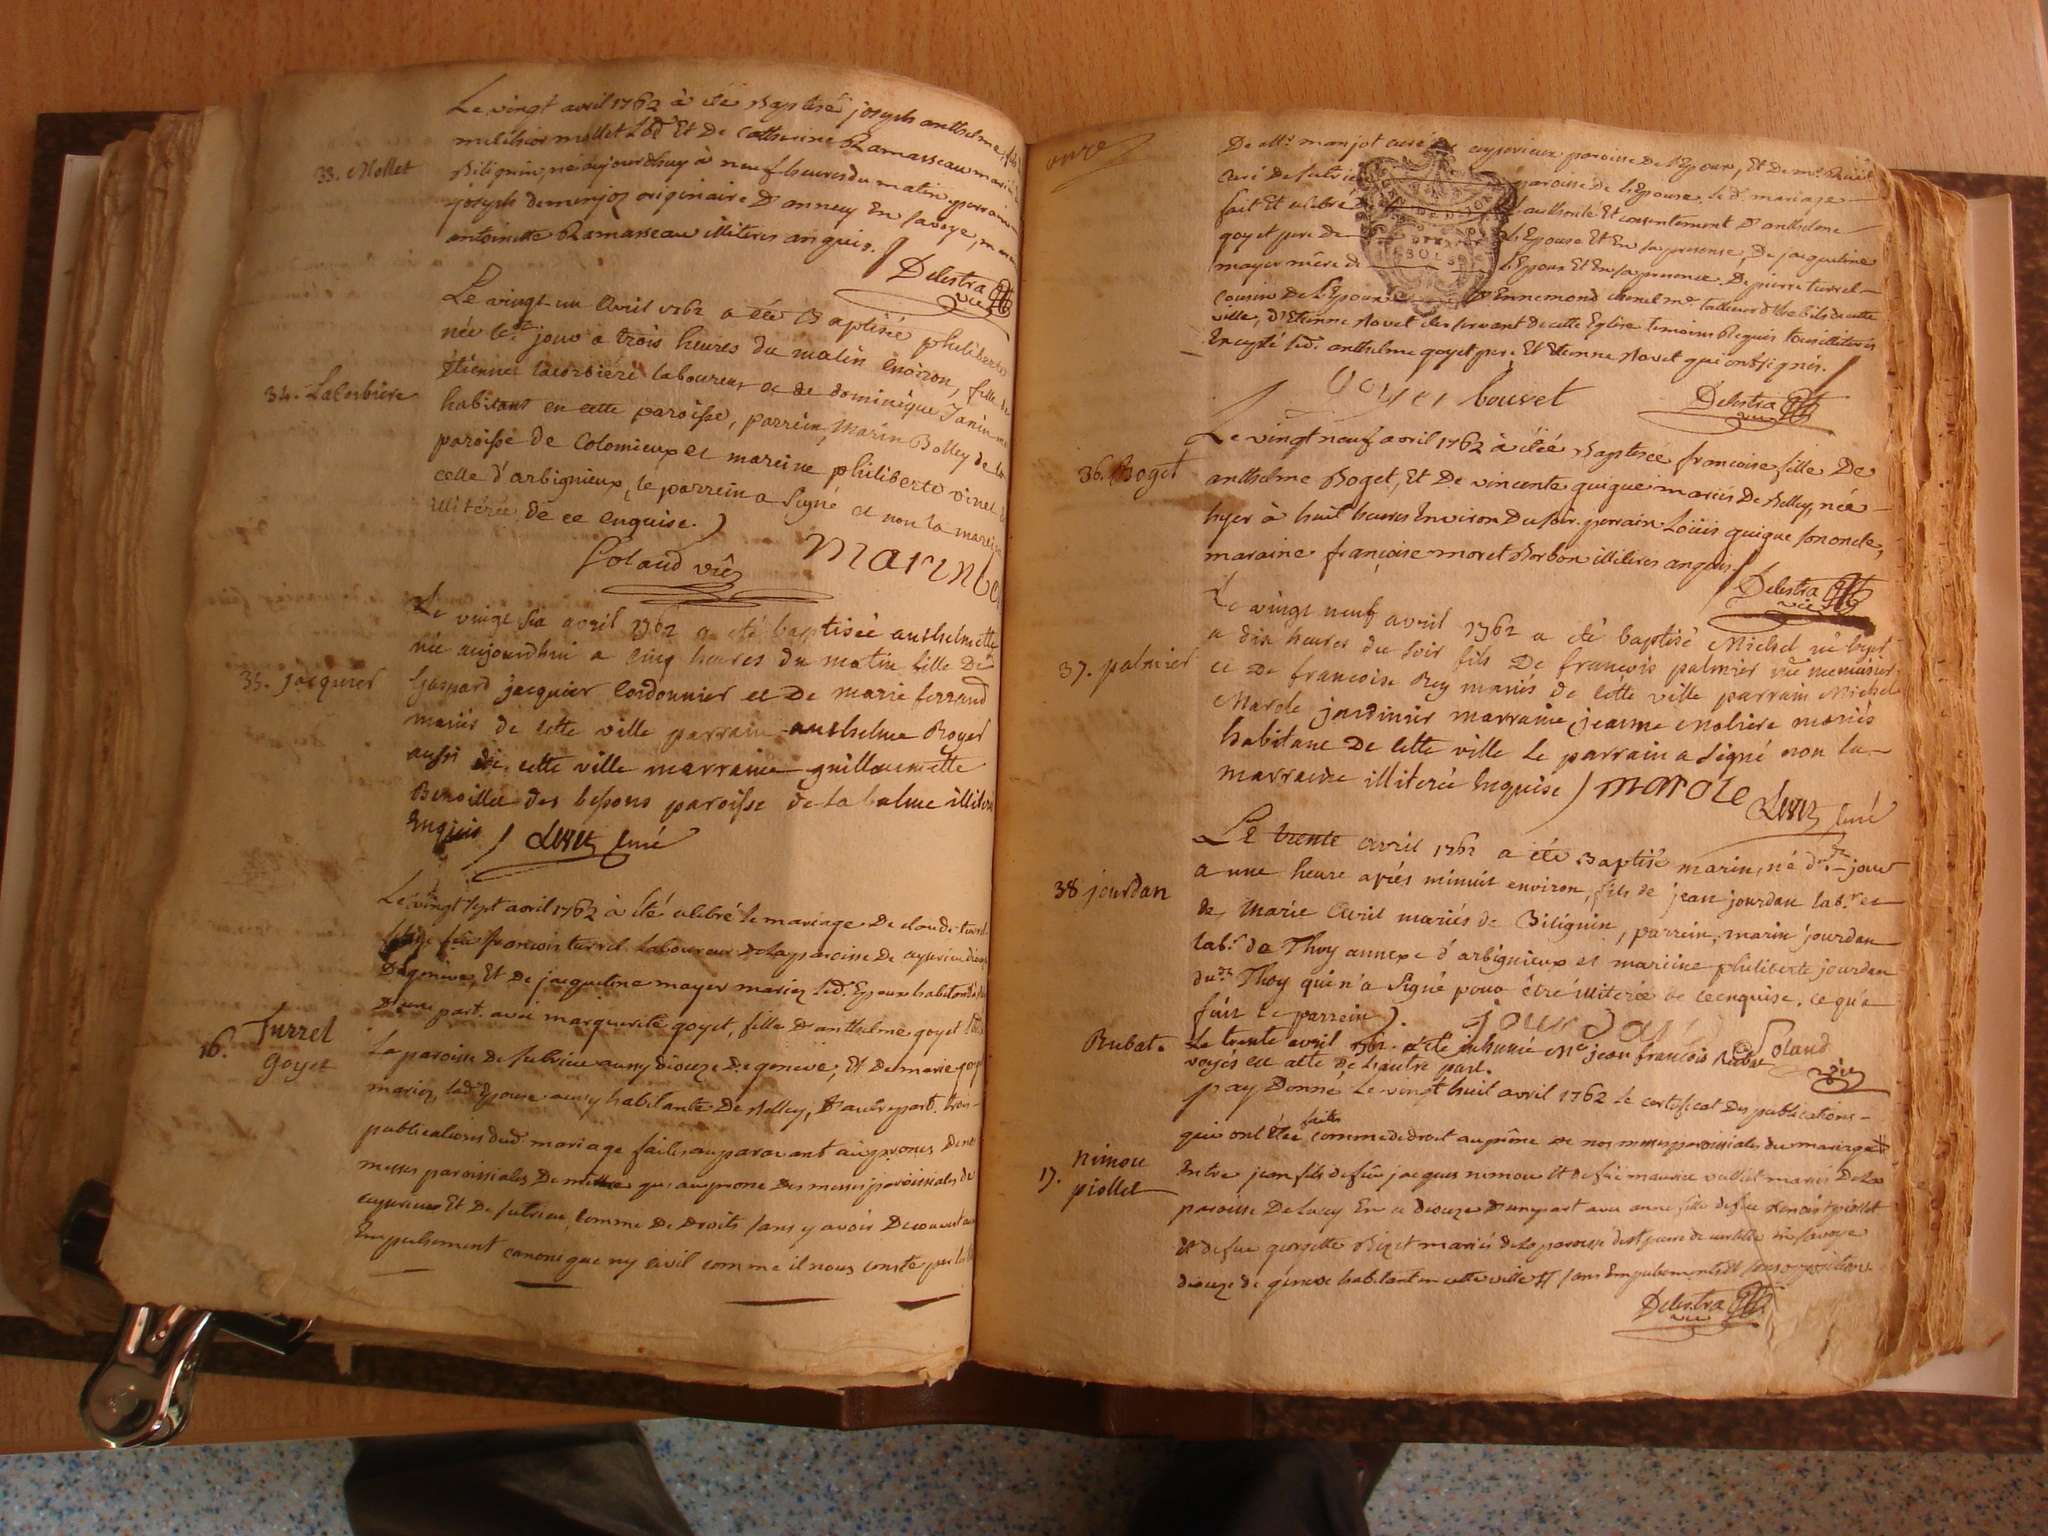 Le vingt avril 1762 à été Baptisé joseph anthelme fils
melchior mollet Et De Catherine Ramasseau mariés
33. Mollet
Biliguin, né aujourdhuy à neuf heures du matin parrain
joseph demenjoz originaire D'annecy En Savoye, mar
antoinette Ramasseau illiteres anquis.
Delestra vic
Le vingt un avril 1762 a été Baptisée philiberte
née le jour a trois heures du matin environ, fille de
34. Lacorbiere
étienne lacorbiere laboureur et de dominique Janin
habitant en cette paroisse, parrein, Marin Bolley de la
paroisse de Colomieux et mareine philiberte vinet
celle d'arbignieux, le parrein a signé et non la mareine
illitérée de ce enquise.
Goland vic
Marin bo
Le vingt six avril 1762 a été baptisée anthelmette
née aujourdhui a cinq heures du matin fille De
35. jacquier
Gaspard jacquier Cordonnier et De marie ferrand
mariés de cette ville parrain anthelme Royer
aussi de cette ville marraine guillaumette
Benoillie des bessons paroisse de la balme illiteres
Enquis
curé
Le vingt sept avril 1762 à été célébré le mariage De claude turrel
feu francois turrel Laboureur De la paroisse De
De genéve, Et De jacqueline mayer mariez led. Epoux habitant
D'une part. avec marguerite goyet, fille D'anthelme goyet
16. Turrel
goyet
La paroisse De Sutrieu aussy Dioceze De genéve, Et De marie
mariez, lad. Epouse aussy habitante De Belley, D'autre part. trois
publications dud. mariage faites auparavant aux prones De nos
messes paroissiales De même qu'aux prone Des messes paroissiales de
Et De Sutrieu, comme De Droits sans y avoir Decouvert au
Empechement canonique ny civil comme il nous conste par
onze
De Mr. manjot curé paroisse De l'Epoux, Et De mr.
curé De Sutrieu paroisse De l'Epouse. le d. mariage
fait Et célébré L'authorité Et consentement D'anthelme
goyet pere de L'Epouse Et En sa presence, De jacqueline
mayer mère de L'Epoux Et En sa presence. De pierre turrel
cousin De l'Epoux Ennemond tailleur d'habits de cette
ville, D'Etienne Bovet clerc servant de cette Eglise temoins Requis tous illiteres
Excepté led. anthelme goyet pere Et Etienne Bovet qui ont signés.
Goyet bouvet
Delestra vic
Le vingt neuf avril 1762 à été Baptisée francoise fille De
36. Boget
anthelme Boget, Et De vincente guigue mariés De Belley, née
hyer à huit heures Environ Du soir. parrain Loüis guigue son oncle,
maraine françoise moret Borbon illiteres anquis
Delestra vic
Le vingt neuf avril 1762 a été baptisé Michel né hyer
37. palmier
a dix heures du soir fils De francois palmier menuisier
et De francoise Rey mariés de cette ville parrain Michel
Marole jardinier marraine jeanne Moliere mariés
habitant De cette ville Le parrain a signé non la
marraine illiterée Enquise
marole
curé
Le trente avril 1762 a été Baptisé marin, né d. jour
a une heure après minuit environ, fils de jean jourdan lab. et
38 jourdan
de Marie Cuvil mariés de Biliguin, parrein, marin jourdan
lab. de Thoy annexe d'arbignieux et mareine philiberte jourdan
dud. Thoy qui n'a signé pour être illiterée de ce enquise. ce qu'a
fait le parrein.
jourdan
Goland vic
Rubat. Le trente avril 1762. a été inhumé Me jean francois Rubat
voyés cet acte de l'autre part.
j'ay Donné Le vingt huit avril 1762 le certificat Des publications
qui ont étée faites comme de droit au prône de nos messes paroissiales du mariage
17. nimou
piollet
Entre jean fils de feu jacques nimou Et de feüe maurice vulliet mariés De la
paroisse De lucey En ce Dioceze D'une part avec anne fille de feu Benoist piollet
Et de feue georgette Bizet mariés de la paroisse de St pierre de curtille En Savoye
dioceze de genéve habitant en cette ville Et sans Empechement Et sans opposition
Delestra vic